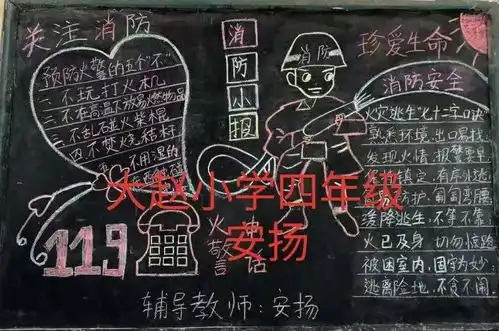 关注消防
珍爱生命
消防小报
消防
消防安全
预防火警的五个"不"
一 不玩打火机
二 不在高温下放易燃物品
三 不乱石进火柴棍
四 不焚烧秸秆
不用湿的
火灾逃生七十二字口诀
熟悉环境,出口易找
发现火情,报警要早
镇定,有序外逃
防护,匍匐弯腰
缓降逃生,不等不靠
火已及身,切勿惊跑
被困室内,固守为妙
逃离险地,不贪不闹
119
火警
电话
大赵小学四年级
安扬
辅导教师:安扬